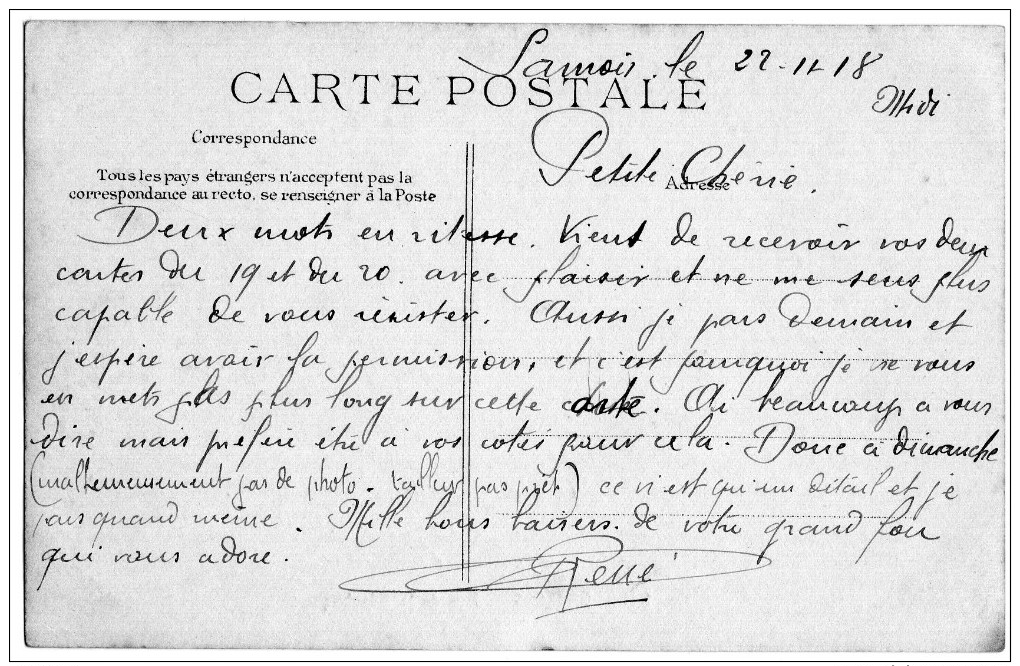 Samois, le 22-11-18
CARTE POSTALE
Midi
Correspondance
Tous les pays étrangers n'acceptent pas la
correspondance au recto, se renseigner à la Poste
Adresse
Petite Chérie.
Deux mots en vitesse. Vient de recevoir vos deux
cartes du 19 et du 20. avec plaisir et ne me sens plus
capable de vous résister. Aussi je pars demain et
j'espère avoir la permission, et c'est pourquoi je ne vous
en mets pas plus long sur cette carte. Ai beaucoup a vous
dire mais préfère être à vos cotés pour cela. Donc a dimanche
(malheureusement pas de photo. tailleur pas prêt) ce n'est qu'un détail et je
pars quand même. Mille bons baisers de votre grand fou
qui vous adore.
René